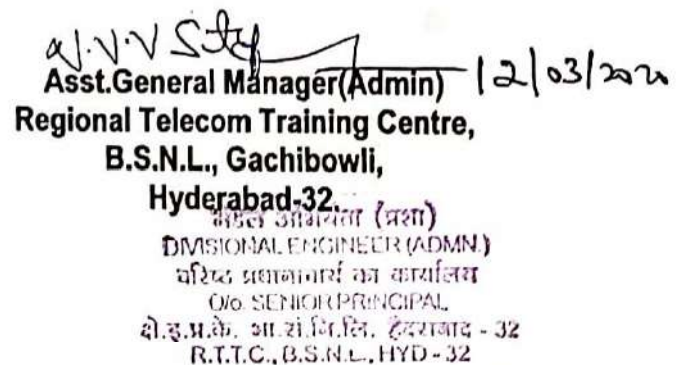 12/03/2020
Asst.General Manager(Admin)
Regional Telecom Training Centre,
B.S.N.L., Gachibowli,
Hyderabad-32.
(प्रशा)
DIVISIONAL ENGINEER (ADMN.)
वरिष्ठ प्रधानाचार्य का कार्यालय
O/o. SENIOR PRINCIPAL
क्षे.दू.प्र.के. भा.सं.नि.लि. हैदराबाद - 32
R.T.T.C., B.S.N.L., HYD - 32